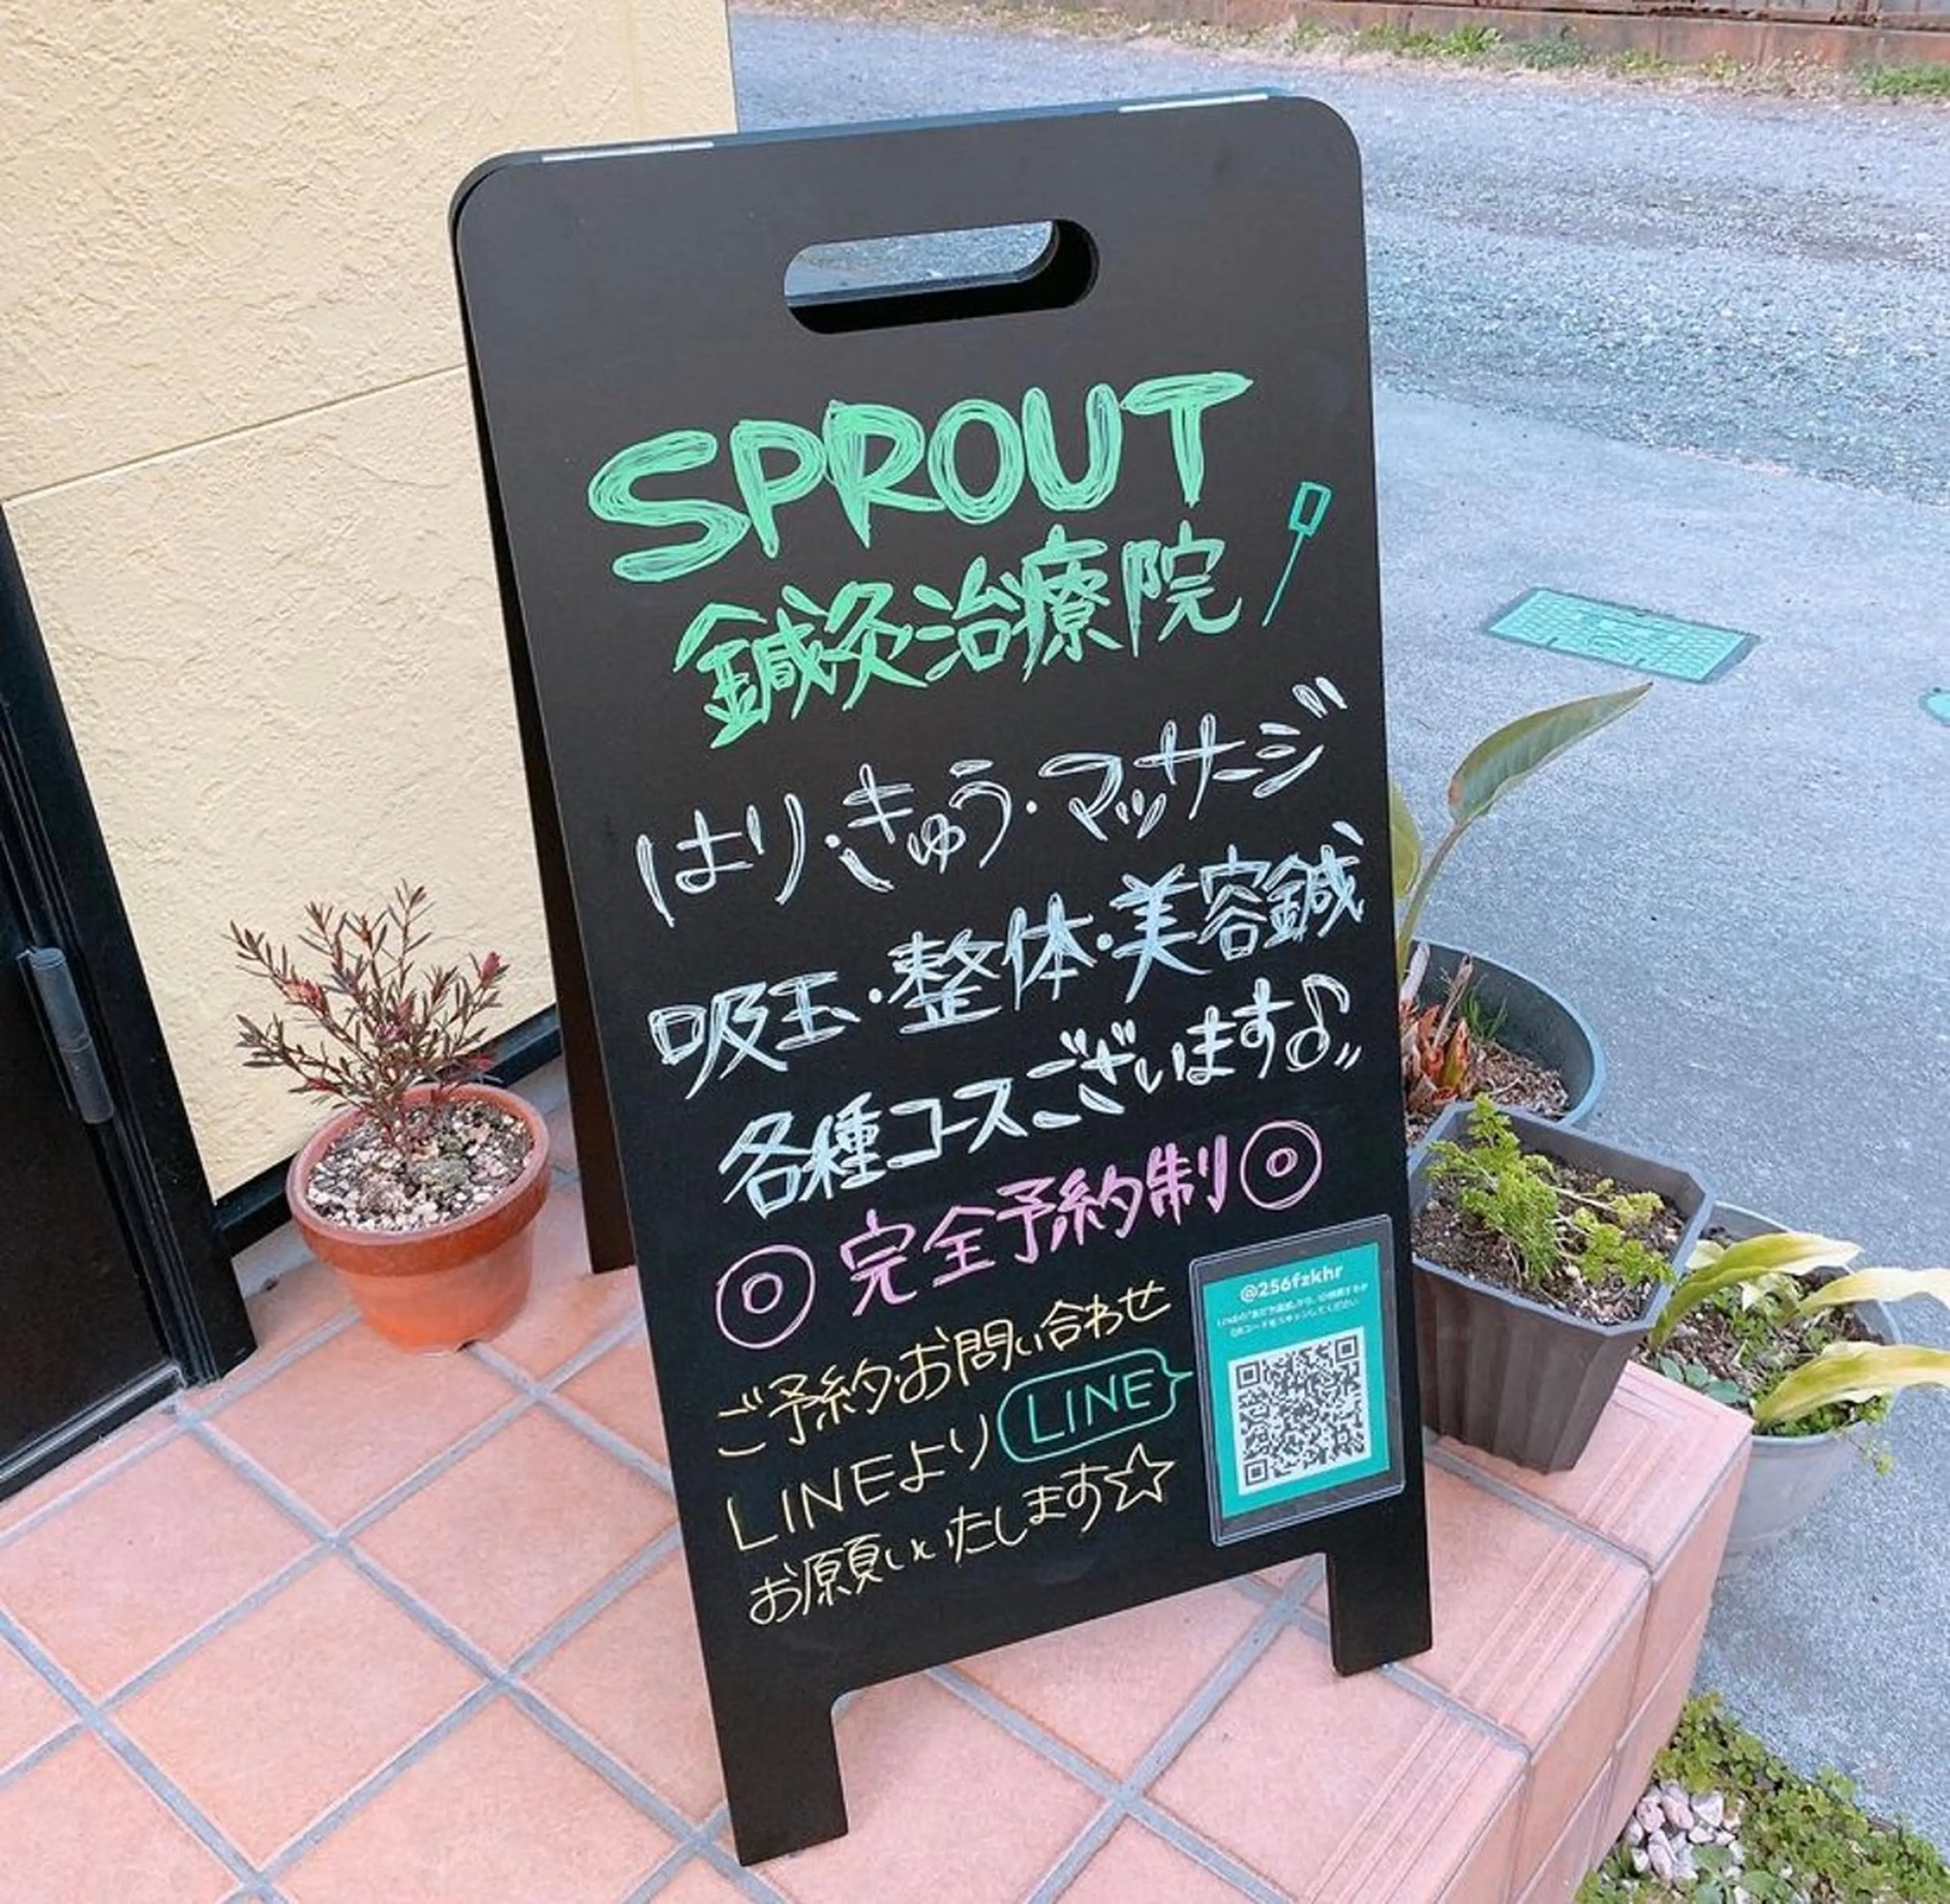 SPROUT
鍼灸治療院
はり・きゅう・マッサージ
吸玉・整体・美容鍼
各種コースございます♪
◎完全予約制◎
ご予約・お問い合わせ
LINEより LINE
お願いいたします☆
@256fzkhr
QRコードをスキャンしてください